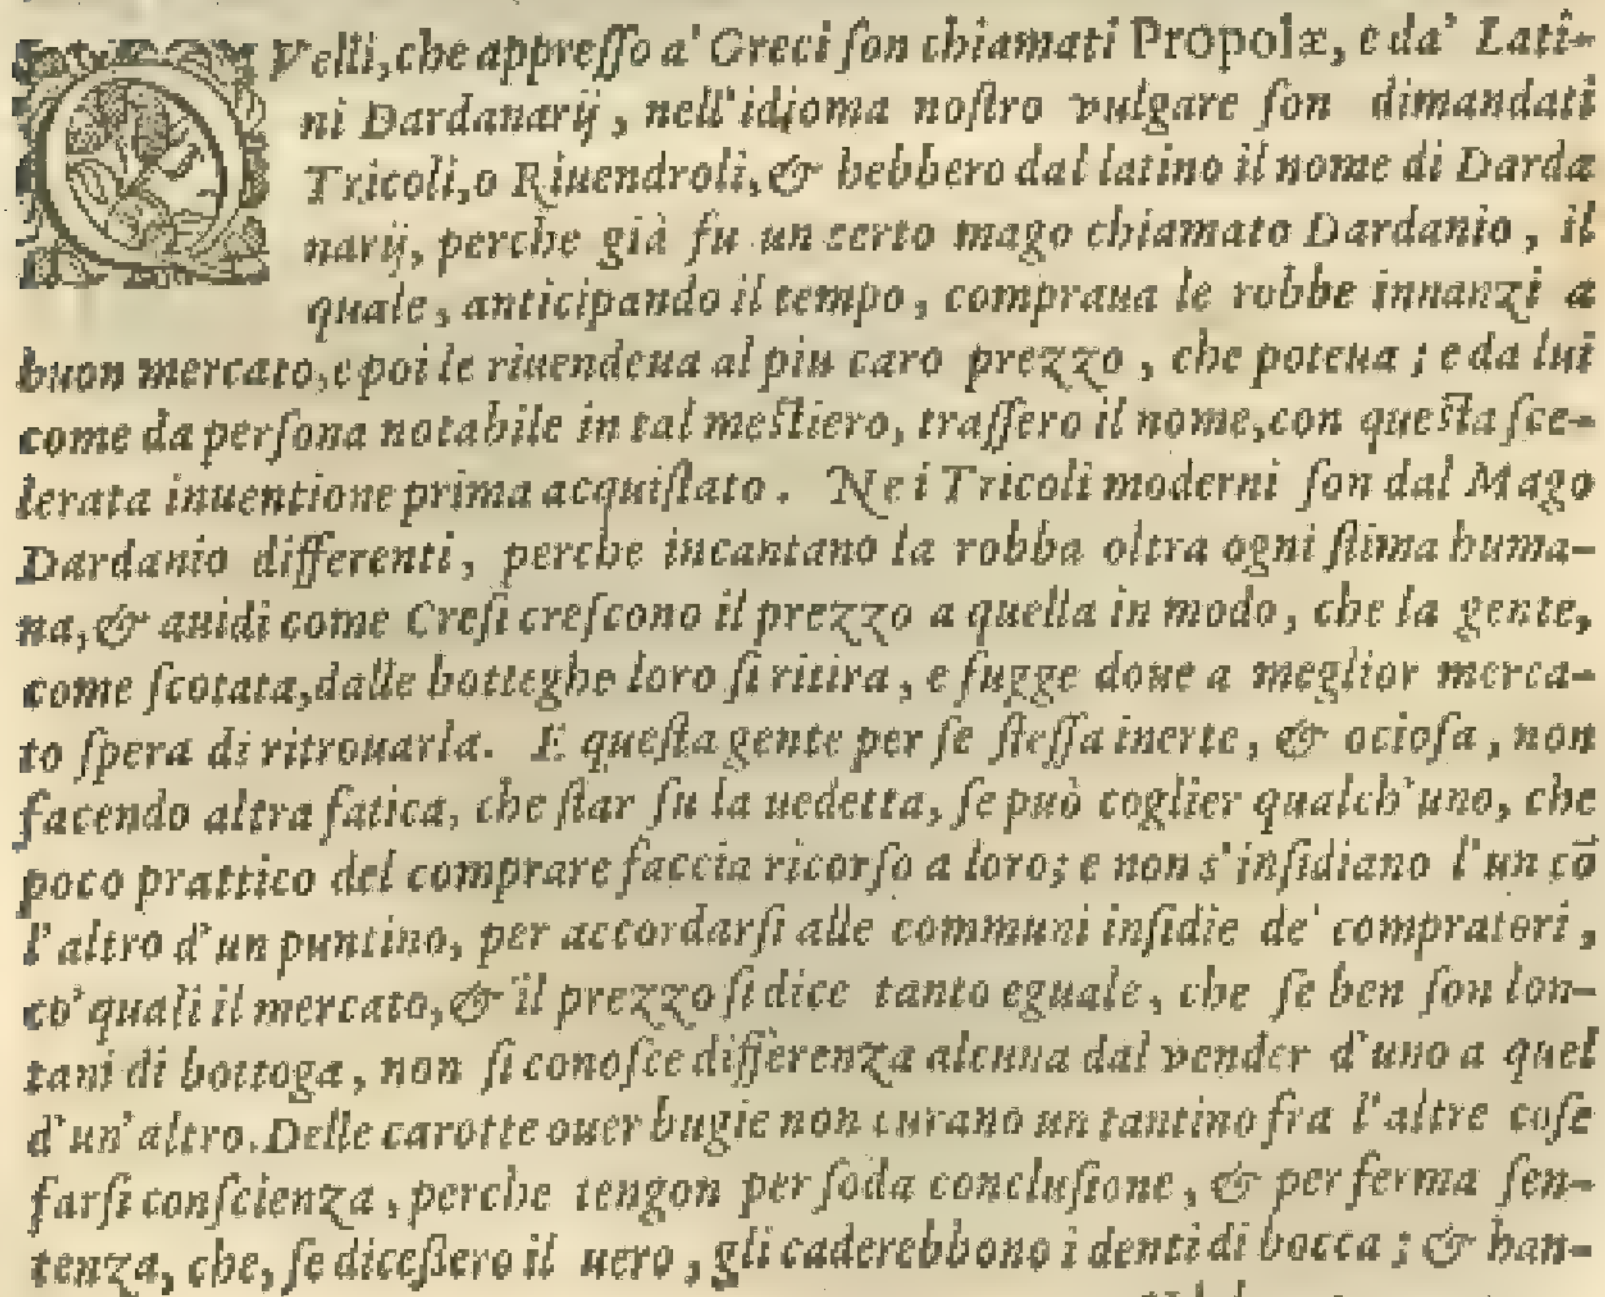 QVelli, che appreſſo a' Greci ſon chiamati Propolæ, e da' Lati-
ni Dardanarij, nell'idioma noſtro vulgare ſon dimandati
Tricoli, o Riuendroli, & hebbero dal latino il nome di Darda
narij, perche già fu un certo mago chiamato Dardanio, il
quale, anticipando il tempo, compraua le robbe innanzi a
buon mercato, e poi le riuendeua al piu caro prezzo, che poteua; e da lui
come da perſona notabile in tal meſtiero, traſſero il nome, con queſta ſce-
lerata inuentione prima acquiſtato. Ne i Tricoli moderni ſon dal Mago
Dardanio differenti, perche incantano la robba oltra ogni ſtima huma-
na, & auidi come Creſi creſcono il prezzo a quella in modo, che la gente,
come ſcotata, dalle botteghe loro ſi ritira, e fugge doue a meglior merca-
to ſpera di ritrouarla. E queſta gente per ſe ſteſſa inerte, & ocioſa, non
facendo altra fatica, che ſtar ſu la uedetta, ſe può coglier qualch'uno, che
poco prattico del comprare faccia ricorſo a loro; e non s'inſidiano l'un cō
l'altro d'un puntino, per accordarſi alle communi inſidie de' compratori,
co' quali il mercato, & il prezzo ſi dice tanto eguale, che ſe ben ſon lon-
tani di bottoga, non ſi conoſce differenza alcuna dal vender d'uno a quel
d'un'altro. Delle carotte ouer bugie non curano un tantino fra l'altre coſe
farſi conſcienza, perche tengon per ſoda concluſione, & per ferma ſen-
tenza, che, ſe diceßero il uero, gli caderebbono i denti di bocca; & han-